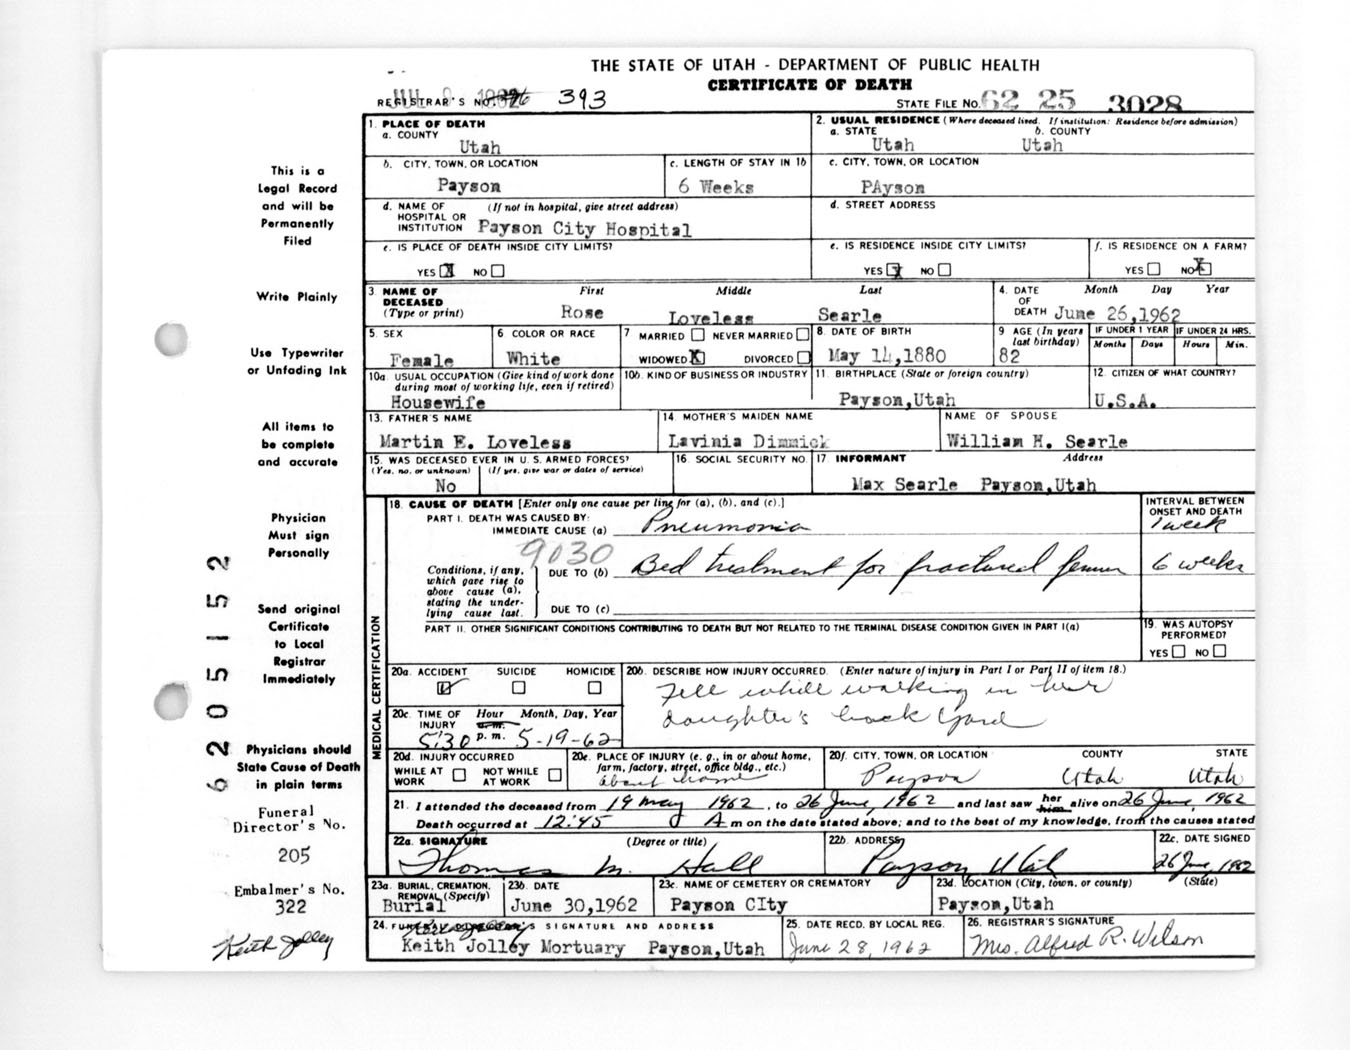 THE STATE OF UTAH - DEPARTMENT OF PUBLIC HEALTH
CERTIFICATE OF DEATH
REGISTRAR'S NO. 393
STATE FILE NO. 62 25 3028
1. PLACE OF DEATH
a. COUNTY
Utah
2. USUAL RESIDENCE (Where deceased lived. If institution: Residence before admission)
a. STATE b. COUNTY
Utah Utah
b. CITY, TOWN, OR LOCATION
Payson
c. LENGTH OF STAY IN 1b
6 Weeks
c. CITY, TOWN, OR LOCATION
PAyson
d. NAME OF (If not in hospital, give street address)
HOSPITAL OR
INSTITUTION Payson City Hospital
d. STREET ADDRESS
e. IS PLACE OF DEATH INSIDE CITY LIMITS?
YES X NO
e. IS RESIDENCE INSIDE CITY LIMITS?
YES X NO
f. IS RESIDENCE ON A FARM?
YES NO X
3. NAME OF DECEASED
(Type or print)
First Middle Last
Rose Loveless Searle
4. DATE OF DEATH
Month Day Year
June 26,1962
5. SEX
Female
6 COLOR OR RACE
White
7 MARRIED NEVER MARRIED
WIDOWED X DIVORCED
8. DATE OF BIRTH
May 14,1880
9 AGE (In years last birthday)
82
IF UNDER 1 YEAR IF UNDER 24 HRS.
Months Days Hours Min.
10a. USUAL OCCUPATION (Give kind of work done
during most of working life, even if retired)
Housewife
10b. KIND OF BUSINESS OR INDUSTRY
11. BIRTHPLACE (State or foreign country)
Payson,Utah
12. CITIZEN OF WHAT COUNTRY?
U.S.A.
13. FATHER'S NAME
Martin E. Loveless
14 MOTHER'S MAIDEN NAME
Lavinia Dimmick
NAME OF SPOUSE
William H. Searle
15. WAS DECEASED EVER IN U. S. ARMED FORCES?
(Yes, no, or unknown) (If yes, give war or dates of service)
No
16 SOCIAL SECURITY NO.
17 INFORMANT Address
Max Searle Payson,Utah
18. CAUSE OF DEATH [Enter only one cause per line for (a), (b), and (c).]
PART I. DEATH WAS CAUSED BY:
IMMEDIATE CAUSE (a) Pneumonia
INTERVAL BETWEEN
ONSET AND DEATH
1 week
9030
Conditions, if any,
which gave rise to
above cause (a),
stating the under-
lying cause last.
DUE TO (b) Bed treatment for fractured femur 6 weeks
DUE TO (c)
PART II. OTHER SIGNIFICANT CONDITIONS CONTRIBUTING TO DEATH BUT NOT RELATED TO THE TERMINAL DISEASE CONDITION GIVEN IN PART I(a)
19. WAS AUTOPSY
PERFORMED?
YES NO
20a. ACCIDENT SUICIDE HOMICIDE
20b. DESCRIBE HOW INJURY OCCURRED. (Enter nature of injury in Part I or Part II of item 18.)
Fell while walking in her
daughter's back yard
20c. TIME OF INJURY Hour Month, Day, Year
a. m.
5:30 p. m. 5-19-62
20d. INJURY OCCURRED
WHILE AT WORK NOT WHILE AT WORK
20e. PLACE OF INJURY (e. g., in or about home,
farm, factory, street, office bldg., etc.)
about home
20f. CITY, TOWN, OR LOCATION COUNTY STATE
Payson Utah Utah
21. I attended the deceased from 19 May 1962, to 26 June, 1962 and last saw her him alive on 26 June, 1962
Death occurred at 12:45 A m on the date stated above; and to the best of my knowledge, from the causes stated
22a. SIGNATURE (Degree or title)
Thomas M. Hall
22b. ADDRESS
Payson Utah
22c. DATE SIGNED
26 June, 1962
23a. BURIAL, CREMATION,
REMOVAL (Specify)
Burial
23b. DATE
June 30,1962
23c. NAME OF CEMETERY OR CREMATORY
Payson CIty
23d. LOCATION (City, town, or county) (State)
Payson,Utah
24. FUNERAL DIRECTOR'S SIGNATURE AND ADDRESS
Keith Jolley Mortuary Payson,Utah
25. DATE RECD. BY LOCAL REG.
June 28, 1962
26. REGISTRAR'S SIGNATURE
Mrs. Alfred R. Wilson
MEDICAL CERTIFICATION
This is a
Legal Record
and will be
Permanently
Filed
Write Plainly
Use Typewriter
or Unfading Ink
All items to
be complete
and accurate
Physician
Must sign
Personally
Send original
Certificate
to Local
Registrar
Immediately
Physicians should
State Cause of Death
in plain terms
Funeral
Director's No.
205
Embalmer's No.
322
Keith Jolley
62 05 152